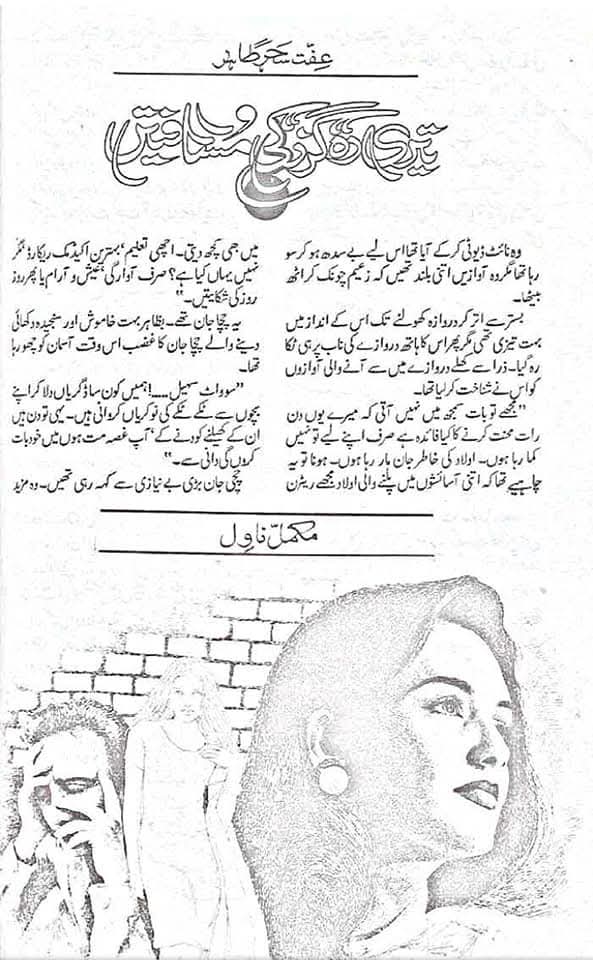 عفت سحر طاہر
تیری رہ گزر کی مسافتیں
وہ نائٹ ڈیوٹی کرکے آیا تھا اس لیے بے سدھ ہو کر سو
رہا تھا مگر وہ آوازیں اتنی بلند تھیں کہ زعیم چونک کر اٹھ
بیٹھا۔
بستر سے اتر کر دروازہ کھولنے تک اس کے انداز میں
بہت تیزی تھی مگر پھر اس کا ہاتھ دروازے کی ناب پر ہی ٹکا
رہ گیا۔ ذرا سے کھلے دروازے میں سے آنے والی آوازوں
کو اس نے شناخت کر لیا تھا۔
”مجھے تو بات سمجھ میں نہیں آتی کہ میرے یوں دن
رات محنت کرنے کا کیا فائدہ ہے صرف اپنے لیے تو نہیں
کما رہا ہوں۔ اولاد کی خاطر جان مار رہا ہوں۔ ہونا تو یہ
چاہیے تھا کہ اتنی آسائشوں میں پلنے والی اولاد مجھے ریٹرن
میں بھی کچھ دیتی۔ اچھی تعلیم، بہترین اکیڈمک ریکارڈ، مگر
نہیں یہاں کیا ہے؟ صرف آوارگی، عیش و آرام یا پھر روز
روز کی شکایتیں۔“
یہ چچا جان تھے۔ بظاہر بہت خاموش اور سنجیدہ دکھائی
دینے والے چچا جان کا غضب اس وقت آسمان کو چھو رہا
تھا۔
”سو واٹ سہیل.....! ہمیں کون سا ڈگریاں دلا کر اپنے
بچوں سے ٹکے ٹکے کی نوکریاں کروانی ہیں۔ یہی تو دن ہیں
ان کے کھیلنے کودنے کے، آپ غصہ مت ہوں میں خود بات
کروں گی دانی سے۔“
چچی جان بڑی بے نیازی سے کہہ رہی تھیں۔ وہ مزید
مکمل ناول